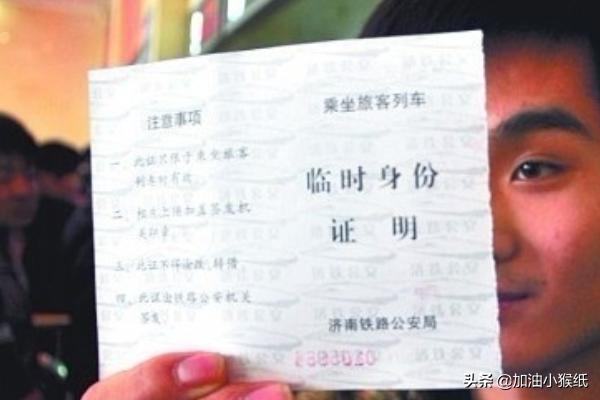 注意事项
一、此证只限于乘坐旅客
列车时有效。
二、相片上须加盖签发机
关印章。
三、此证不得涂改、转借
四、此证由铁路公安机关
签发。
乘坐旅客列车
临时身份
证明
济南铁路公安局
头条 @加油小猴纸